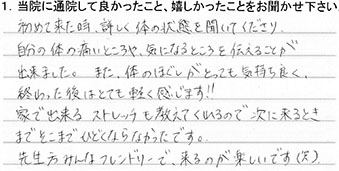 1. 当院に通院して良かったこと、嬉しかったことをお聞かせ下さい
初めて来た時、詳しく体の状態を聞いてくださり、
自分の体の痛いところや、気になるところを伝えることが
出来ました。また、体のほぐしがとっても気持ち良く、
終わった後はとても軽く感じます!!
家で出来るストレッチも教えてくれるので次に来るとき
までそこまでひどくならなかったです。
先生方みんなフレンドリーで、来るのが楽しいです(笑)